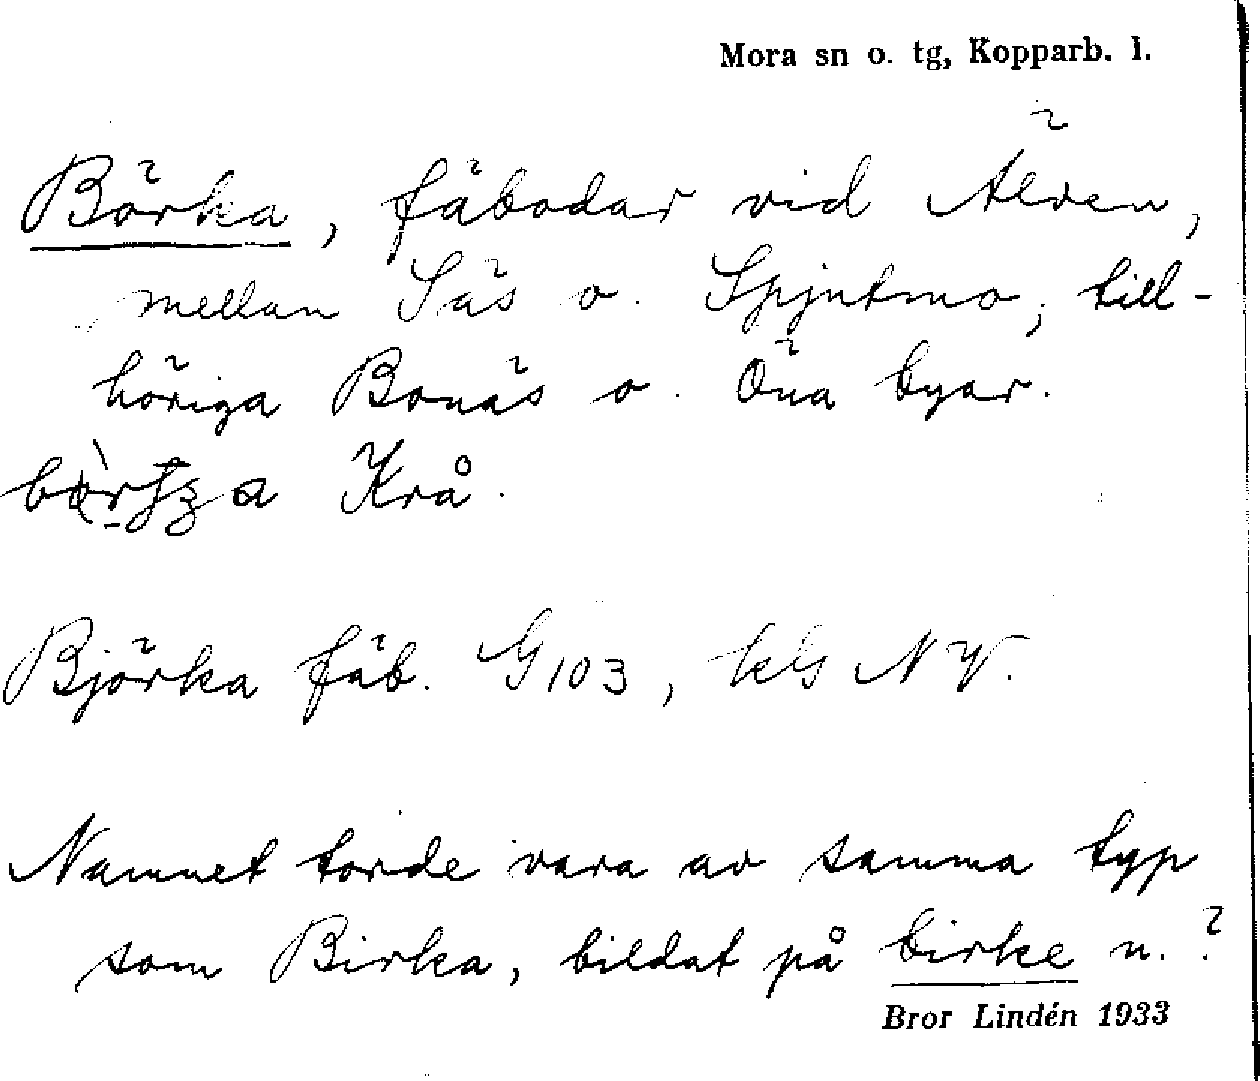 Mora sn o. tg, Kopparb. l.
Börka, fäbodar vid Älven,
mellan Säs o. Spjutmo, till-
höriga Bonäs o. Öna byar.
Krå.
Björka fäb. G 103, kls NV.
Namnet torde vara av samma typ
som Birka, bildat på birke n.?
Bror Lindén 1933